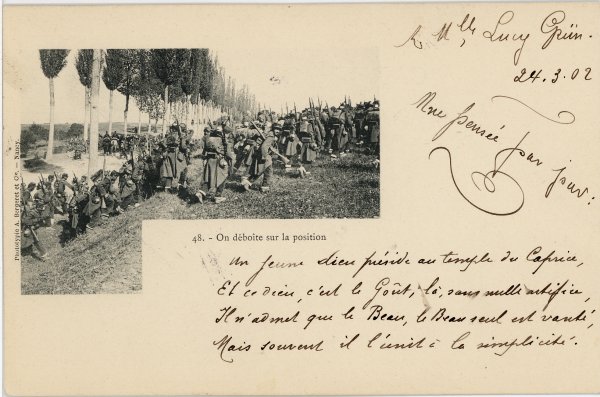 A Mlle Lucy Grün.
24.3.02
Une pensée par jour.
Phototypie A. Bergeret et Cie. — Nancy.
48. - On déboîte sur la position
Un jeune Dieu préside au temple du Caprice,
Et ce dieu, c'est le Goût; là, sans nulle artifice,
Il n'admet que le Beau, le Beau seul est vanté,
Mais souvent il l'unit à la simplicité.